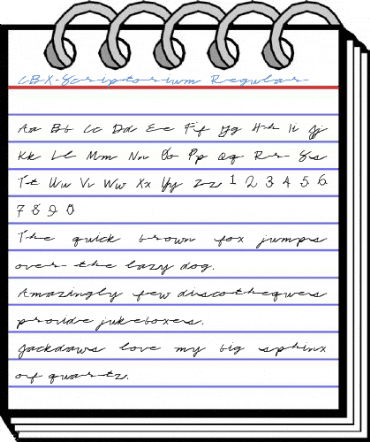 CBX-Scriptorium Regular
Aa Bb Cc Dd Ee Ff Gg Hh Ii Jj
Kk Ll Mm Nn Oo Pp Qq Rr Ss
Tt Uu Vv Ww Xx Yy Zz 1 2 3 4 5 6
7 8 9 0
The quick brown fox jumps
over the lazy dog.
Amazingly few discotheques
provide jukeboxes.
Jackdaws love my big sphinx
of quartz.